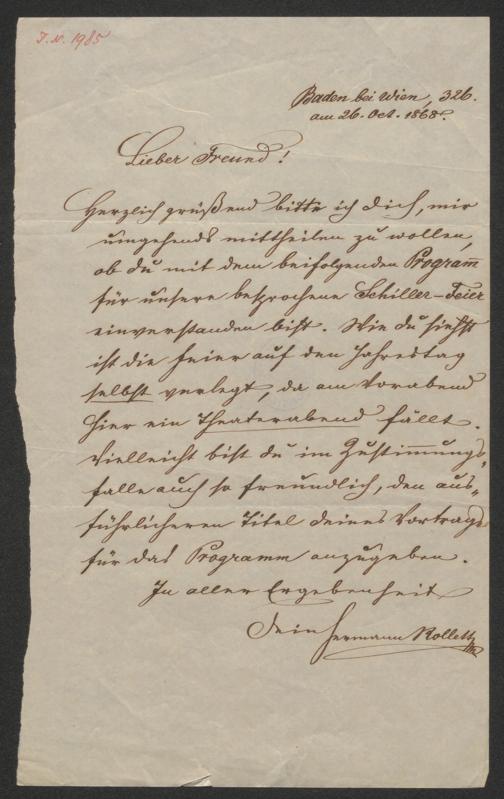 J. N. 1985
Baden bei Wien, 326.
am 26. Oct. 1868.
Lieber Freund!
Herzlich grüßend bitte ich dich, mir
umgehends mittheilen zu wollen,
ob du mit dem beifolgenden Programm
für unsere besprochene Schiller-Feier
einverstanden bist. Wie du siehst
ist die Feier auf den Jahrestag
selbst verlegt, da am Vorabend
hier ein Theaterabend fällt.
Vielleicht bist du im Zustimmungs-
falle auch so freundlich, den aus-
führlicheren Titel deines Vortrags
für das Programm anzugeben.
In aller Ergebenheit
Dein Hermann Rollett